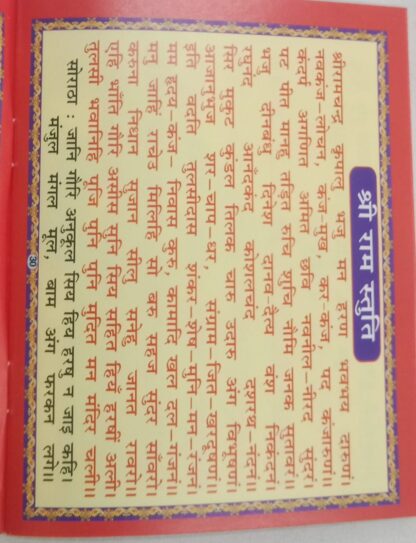 श्री राम स्तुति
श्रीरामचन्द्र कृपालु भजु मन हरण भवभय दारुणं।
नवकंज-लोचन, कंज-मुख, कर-कंज, पद कंजारुणं।।
कंदर्प अगणित अमित छवि नवनील-नीरद सुंदरं।
पट पीत मानहु तड़ित रुचि शुचि नौमि जनक सुतावरं।।
भजु दीनबंधु दिनेश दानव-दैत्य वंश निकंदनं।
रघुनंद आनंदकंद कोशलचंद दशरथ-नंदनं।।
सिर मुकुट कुंडल तिलक चारु उदारु अंग विभूषणं।
आजानुभुज शर-चाप-धर, संग्राम-जित-खरदूषणं।।
इति वदति तुलसीदास शंकर-शेष-मुनि-मन-रंजनं।
मम हृदय-कंज-निवास कुरु, कामादि खल दल-गंजनं।।
मनु जाहिं राचेउ मिलिहि सो बरु सहज सुंदर सांवरो।
करुना निधान सुजान सीलु सनेहु जानत रावरो।।
एहि भाँति गौरि असीस सुनि सिय सहित हियँ हरषीं अली।
तुलसी भवानिहि पूजि पुनि पुनि मुदित मन मंदिर चली।।
सोरठा : जानि गौरि अनुकूल सिय हिय हरषु न जाइ कहि।
मंजुल मंगल मूल, बाम अंग फरकन लगे।।
30